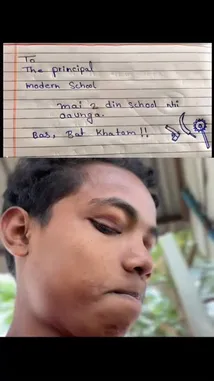 To
The principal
modern School
mai 2 din school nhi
aaunga.
Bas, Bat Khatam!!